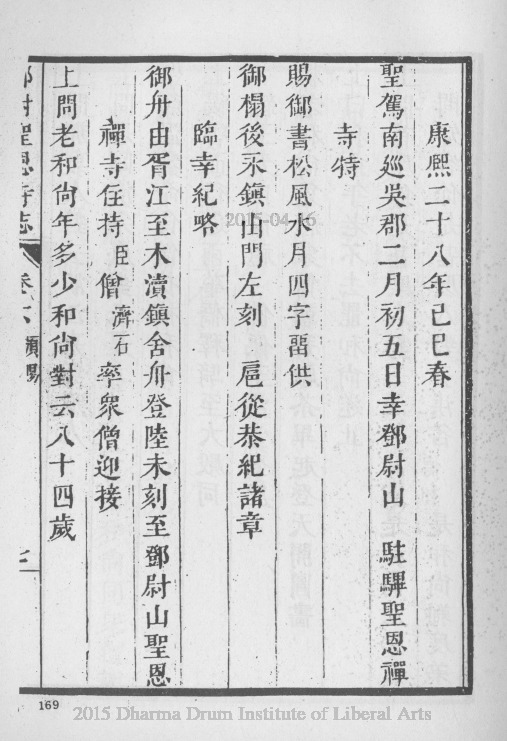 康熙二十八年己巳春
聖駕南廵吳郡二月初五日幸鄧尉山 駐驆聖恩禪
寺特
賜御書松風水月四字畱供
御榻後永鎮山門左刻 扈從恭紀諸章
臨幸紀略
御舟由胥江至木瀆鎮舍舟登陸未刻至鄧尉山聖恩
禪寺住持臣僧濟石率衆僧迎接
上問老和尙年多少和尙對云八十四歲
鄧尉聖恩寺志 卷六 頒賜 七
169
2015-04-16
2015 Dharma Drum Institute of Liberal Arts